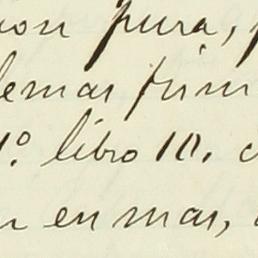 ion pura,
lemas prim
1º. libro 10. c
en mas,